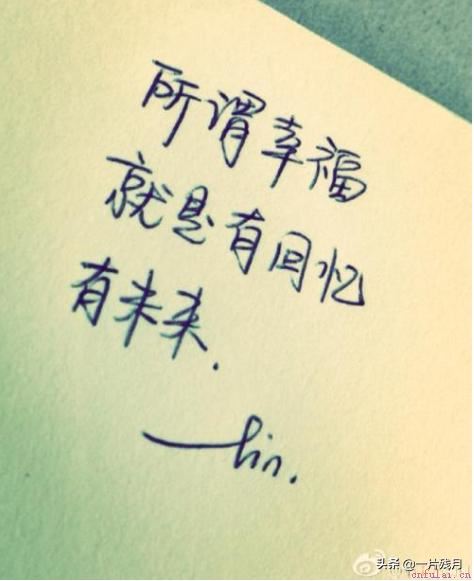 所谓幸福
就是有回忆
有未来.
—lin.
头条 @一片残月
cnfulai.cn